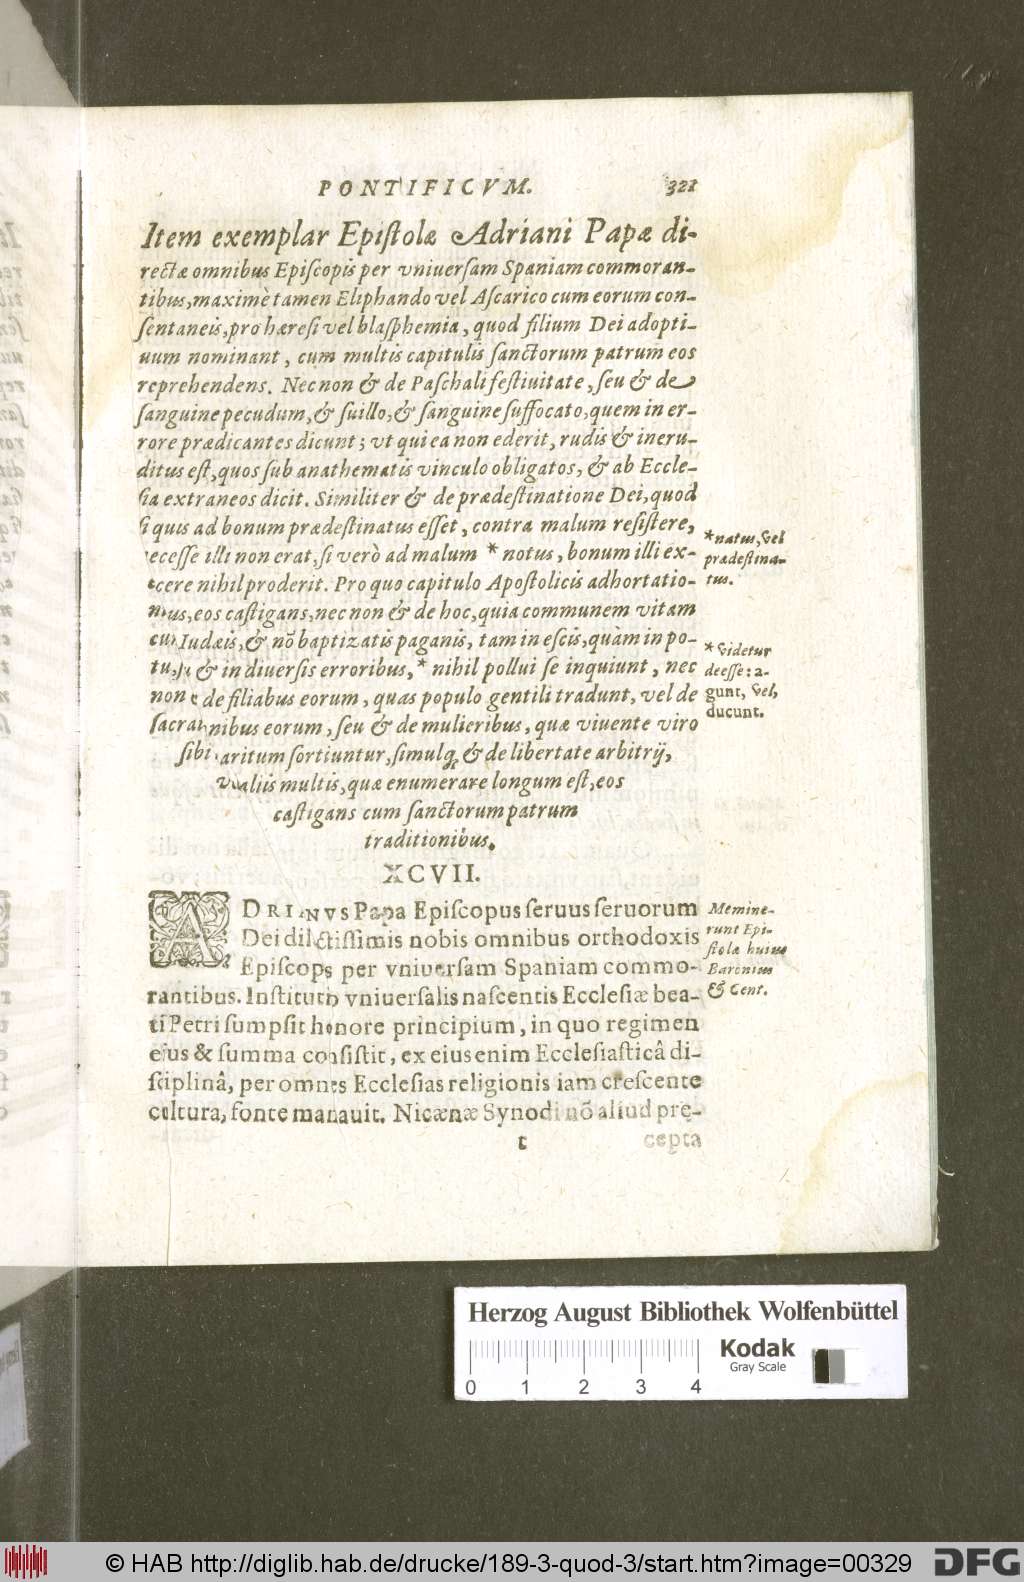 PONTIFICVM. 321
Item exemplar Epiſtolæ Adriani Papæ di-
rectæ omnibus Epiſcopis per vniuerſam Spaniam commoran-
tibus, maximè tamen Eliphando vel Aſcarico cum eorum con-
ſentaneis, pro hæreſi vel blaſphemia, quod filium Dei adopti-
uum nominant, cum multis capitulis ſanctorum patrum eos
reprehendens. Necnon & de Paſchali feſtiuitate, ſeu & de
ſanguine pecudum, & ſuillo, & ſanguine ſuffocato, quem in er-
rore prædicantes dicunt; vt qui ea non ederit, rudis & ineru-
ditus eſt, quos ſub anathematis vinculo obligatos, & ab Eccle-
ſia extraneos dicit. Similiter & de prædeſtinatione Dei, quod
ſi quis ad bonum prædeſtinatus eſſet, contra malum reſiſtere,
eceſſe illi non erat, ſi verò ad malum * notus, bonum illi ex-
cere nihil proderit. Pro quo capitulo Apoſtolicis adhortatio-
nius, eos caſtigans, nec non & de hoc, quia communem vitam
cu Iudæis, & nō baptizatis paganis, tam in eſcis, quàm in po-
tu, & in diuerſis erroribus, * nihil pollui ſe inquiunt, nec
non de filiabus eorum, quas populo gentili tradunt, vel de
ſacra nibus eorum, ſeu & de mulieribus, quæ viuente viro
ſibi aritum ſortiuntur, ſimulq; & de libertate arbitrij,
aliis multis, quæ enumerare longum eſt, eos
caſtigans cum ſanctorum patrum
traditionibus.
* natus, vel
prædeſtina-
tus.
* Videtur
deeſſe: a-
gunt, vel,
ducunt.
XCVII.
ADRIANVS Papa Epiſcopus ſeruus ſeruorum
Dei dilectiſſimis nobis omnibus orthodoxis
Epiſcops per vniuerſam Spaniam commo-
rantibus. Inſtitutio vniuerſalis naſcentis Eccleſiæ bea-
ti Petri ſumpſit honore principium, in quo regimen
eius & ſumma conſiſtit, ex eius enim Eccleſiaſticâ di-
ſciplinâ, per omnes Eccleſias religionis iam creſcente
cultura, fonte manauit. Nicænæ Synodi nō aliud prę-
Memine-
runt Epi-
ſtolæ huius
Baronius
& Cent.
t cepta
Herzog August Bibliothek Wolfenbüttel
Kodak
Gray Scale
0 1 2 3 4
© HAB http://diglib.hab.de/drucke/189-3-quod-3/start.htm?image=00329
DFG